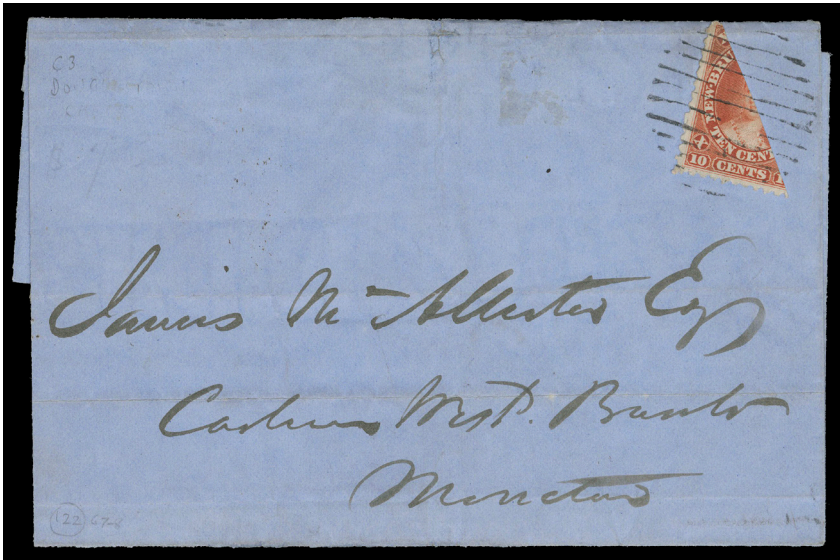 C3
NEW BRU
TEN CENT
X
10 CENTS 1
James McAllister Esq
Cashier West. Bank
Moncton
122